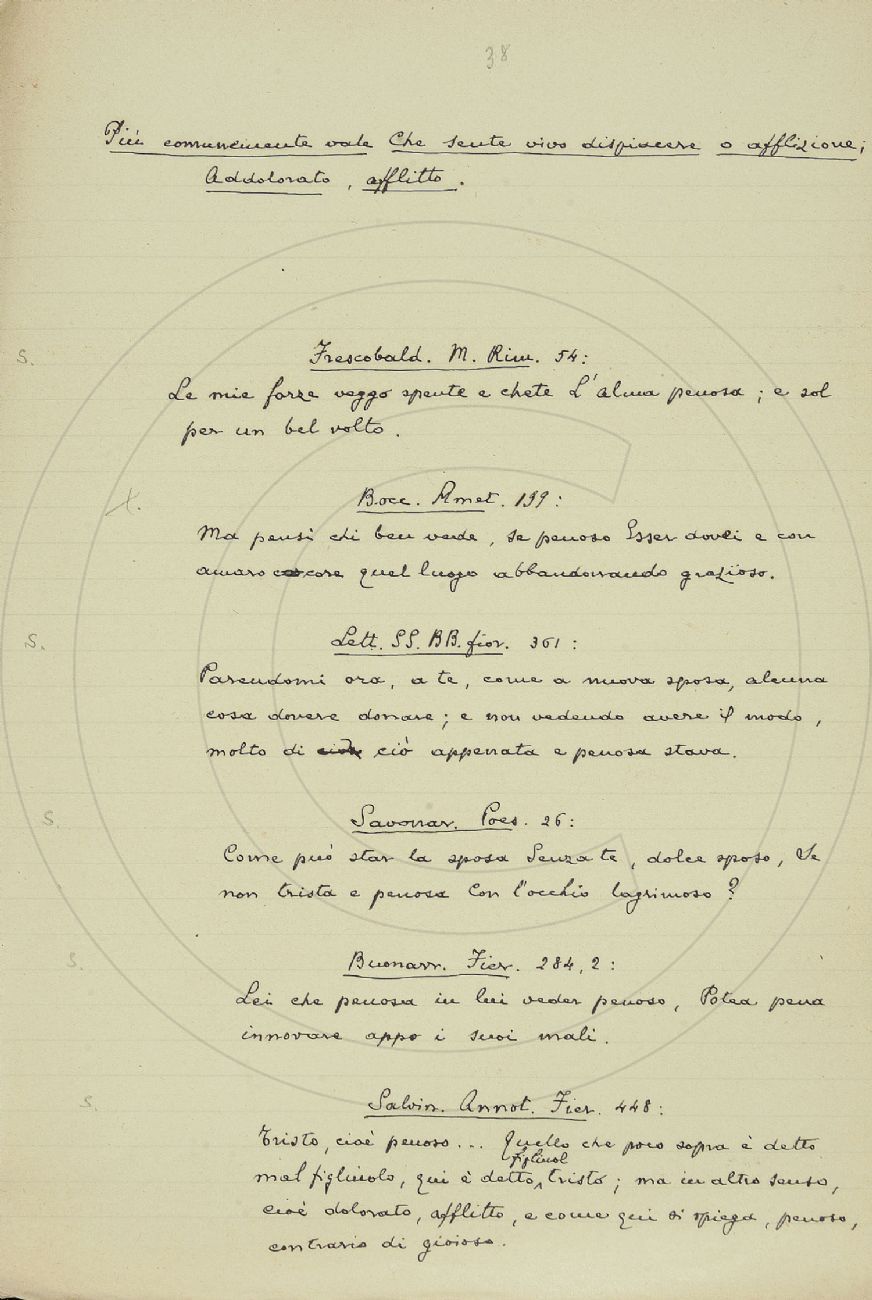 38
Più comunemente vale Che sente vivo dispiacere o afflizione;
Addolorato, afflitto.
S. Frescobald. M. Rim. 54:
Le mie forze veggo spente e chete L'alma penosa; e sol
per un bel volto.
X. Bocc. Amet. 199:
Ma pensi chi ben vede, se penoso Esser dovei e con
amaro core quel luogo abbandonando grazïoso.
S. Lett. SS. BB. fior. 361:
Parendomi ora, a te, come a nuova sposa, alcuna
cosa dovere donare; e non vedendo avere il modo,
molto di ciò appenata e penosa stava.
S. Savonar. Poes. 26:
Come può star la sposa Senza te, dolce sposo, Se
non trista e penosa Con l'occhio lagrimoso?
S. Buonarr. Fier. 284, 2:
Lei che penosa in lui veder penoso, Potea pena
innovare appo i suoi mali.
S. Salvin. Annot. Fier. 448:
Tristo, cioè penoso... Quello che poco sopra è detto
mal figliuolo, qui è detto figliuol tristo; ma in altro senso,
cioè dolorato, afflitto, e come qui si spiega, penoso,
contrario di gioioso.